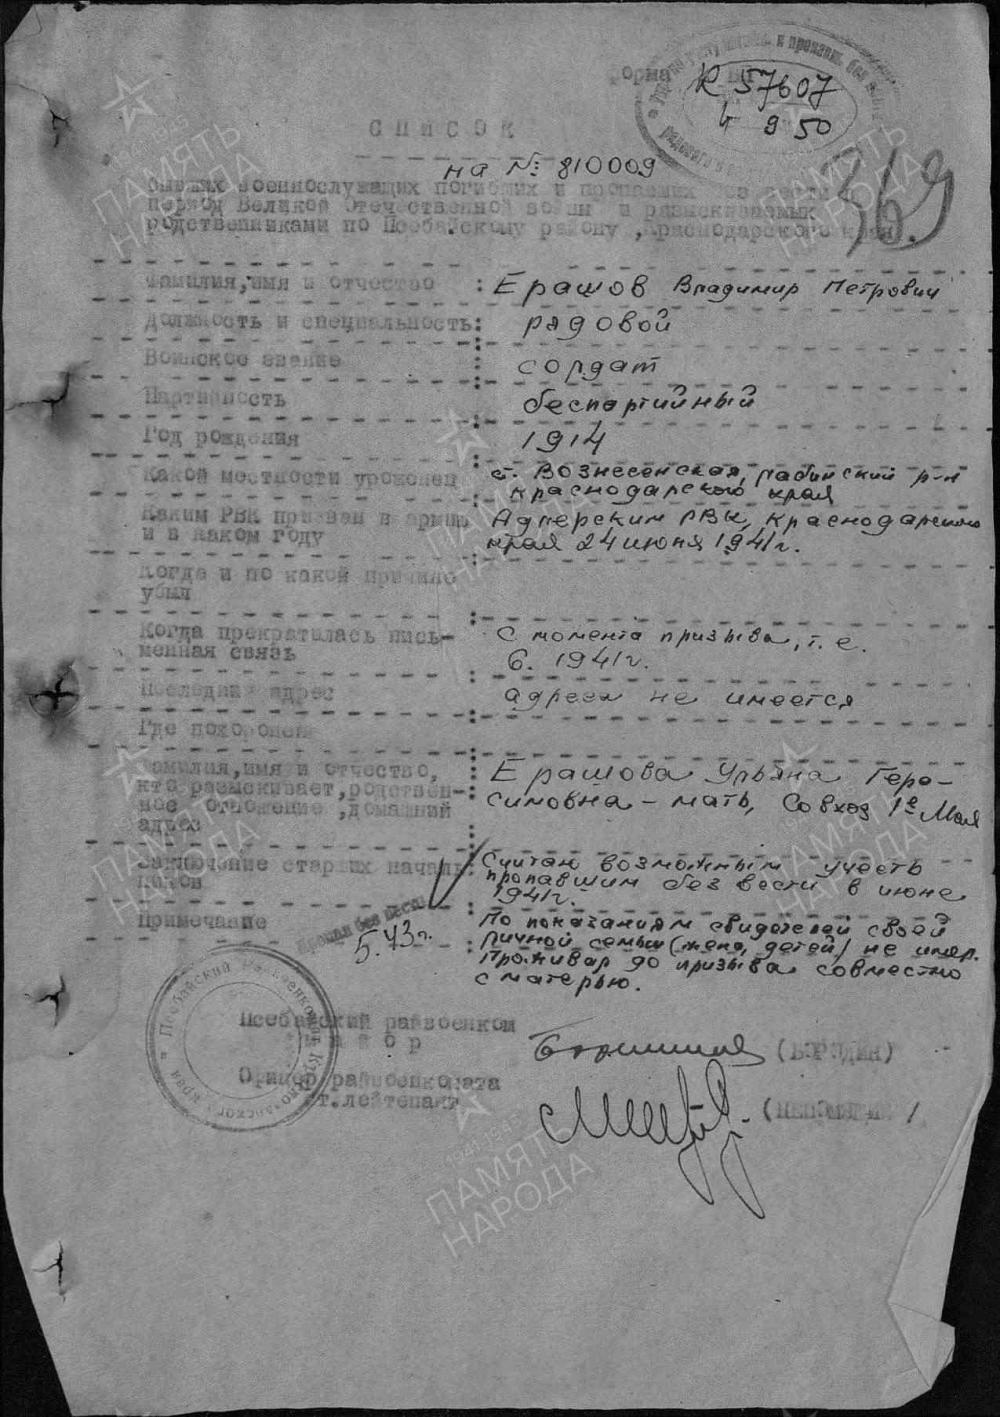 форма
К 57607
4 9 50
СПИСОК
на № 810009
369
бывших военнослужащих погибших и пропавших без вести в
период Великой Отечественной войны и разыскиваемых
родственниками по Псебайскому району, Краснодарского края.
Фамилия, имя и отчество : Ерашов Владимир Петрович
Должность и специальность: рядовой
Воинское звание : солдат
Партийность : беспартийный
Год рождения : 1914
Какой местности уроженец ст. Вознесенская, Лабинский р-н
Краснодарского края
Каким РВК призван в армию Адлерским РВК, Краснодарского
и в каком году края 24 июня 1941г.
Когда и по какой причине
убыл
Когда прекратилась пись- с момента призыва, т.е.
менная связь 6. 1941г.
Последний адрес адреса не имеется
Где похоронен
Фамилия, имя и отчество, Ерашова Ульяна Гера-
кто разыскивает, родствен- симовна - мать, Совхоз 1е Мая
ное отношение, домашний
адрес
Заключение старших началь- Считаю возможным учесть
ников пропавшим без вести в июне
1941г.
Примечание По показаниям свидетелей своей
Пропал без вести
5.43г.
личной семьи (жена, детей) не имел.
Проживал до призыва совместно
с матерью.
Псебайский райвоенком
майор (БОРОДИН)
Офицер райвоенкомата
ст. лейтенант
ПАМЯТЬ
НАРОДА
1941-1945